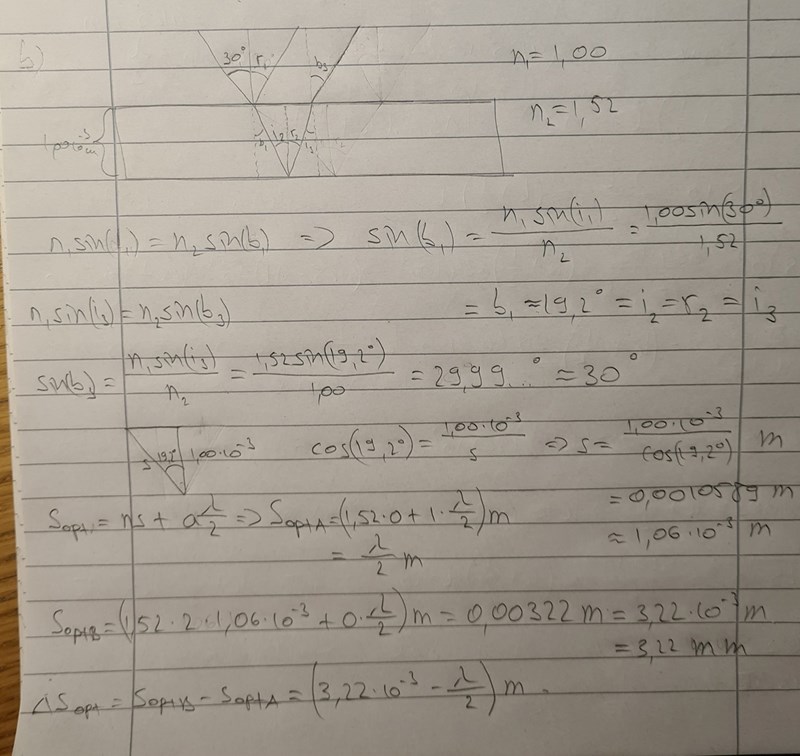 b)
30° r₁ b₃ n₁=1,00
n₂=1,52
b₁ i₂ r₂ i₃
n₁sin(i₁)=n₂sin(b₁) => sin(b₁)=\frac{n₁sin(i₁)}{n₂}=\frac{1,00sin(30°)}{1,52}
= b₁≈19,2°=i₂=r₂=i₃
n₁sin(i₃)=n₂sin(b₃)
sin(b₃)=\frac{n₁sin(i₃)}{n₂}=\frac{1,52sin(19,2°)}{1,00}=29,99...°≈30°
s 1,00·10⁻³ cos(19,2°)=\frac{1,00·10⁻³}{s} => s=\frac{1,00·10⁻³}{cos(19,2°)} m
=0,0010589 m
≈1,06·10⁻³ m
S_{opt}=ns+a\frac{λ}{2}=>S_{optA}=(1,52·0+1·\frac{λ}{2})m
=\frac{λ}{2}m
S_{optB}=(1,52·2·1,06·10⁻³+0·\frac{λ}{2})m=0,00322 m=3,22·10⁻³m
=3,22 mm
ΔS_{opt}=S_{optB}-S_{optA}=(3,22·10⁻³-\frac{λ}{2})m.